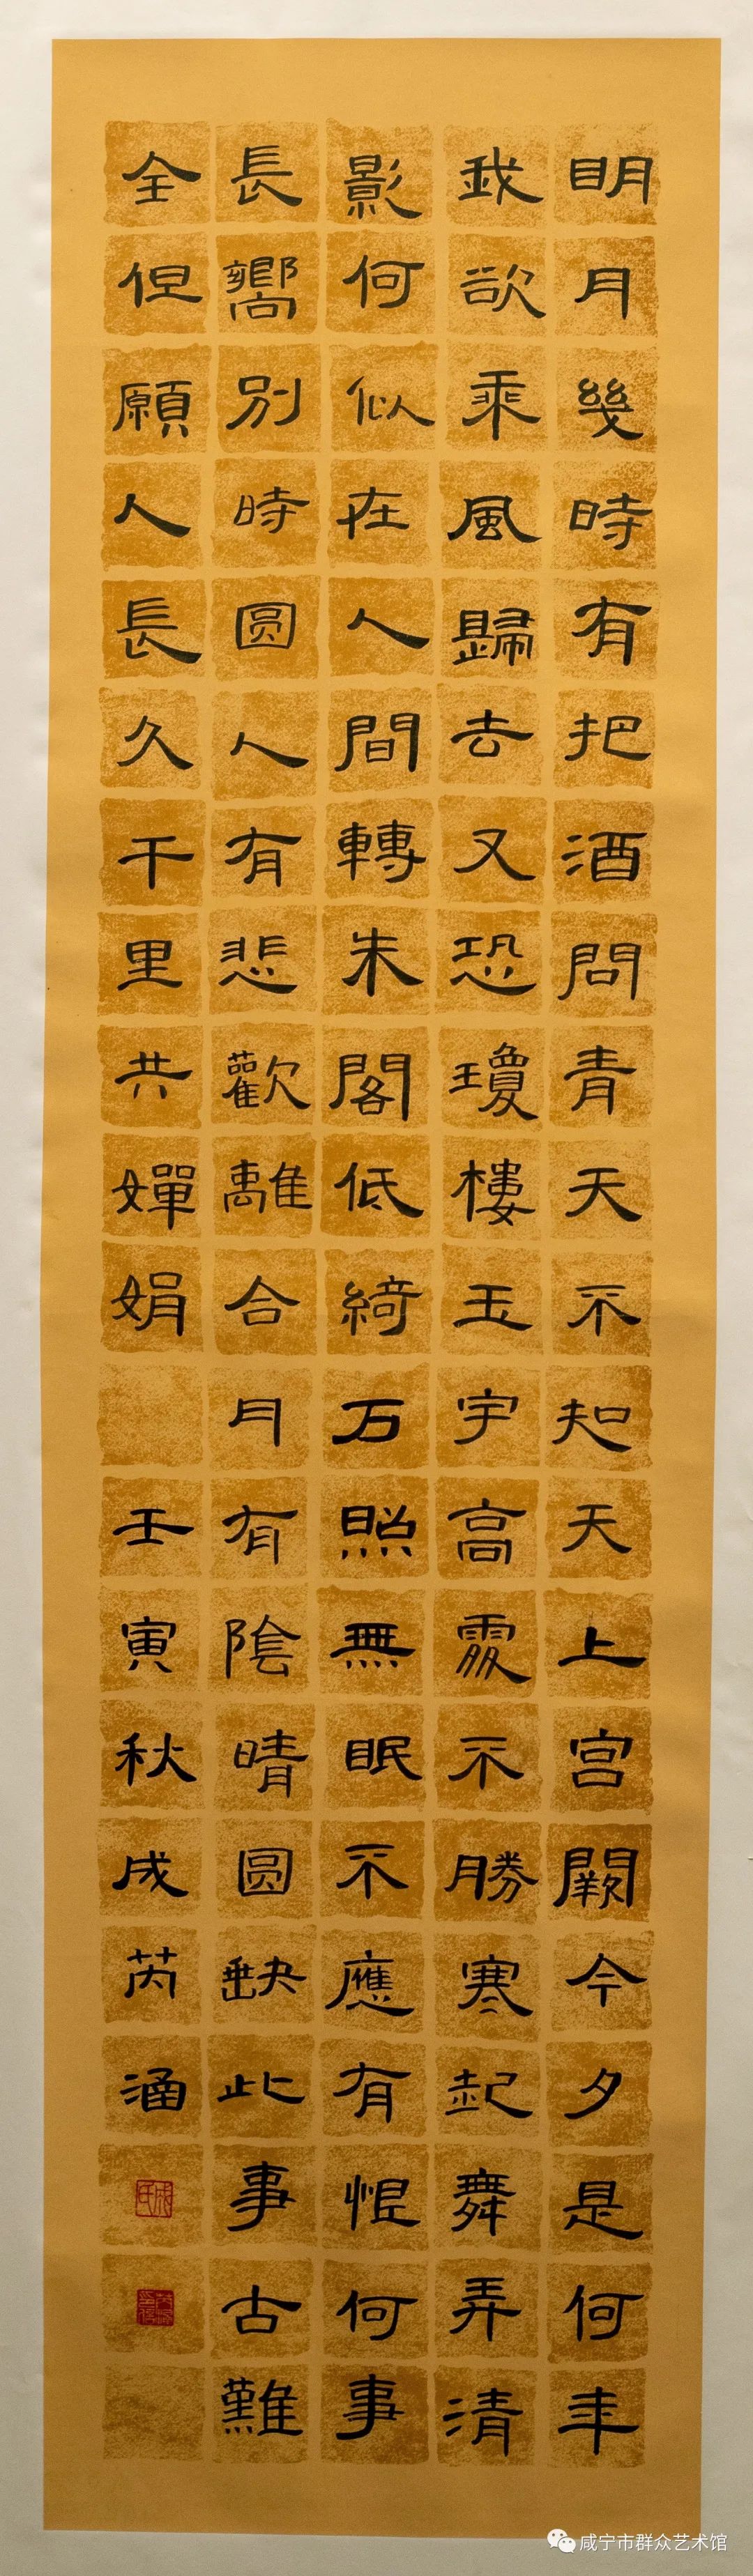 明月幾時有把酒問青天不知天上宮闕今夕是何年
我欲乘風歸去又恐瓊樓玉宇高處不勝寒起舞弄清
影何似在人間轉朱閣低綺石照無眠不應有恨何事
長嚮別時圓人有悲歡離合月有陰晴圓缺此事古難
全但願人長久千里共嬋娟
壬寅秋成芮涵
咸宁市群众艺术馆